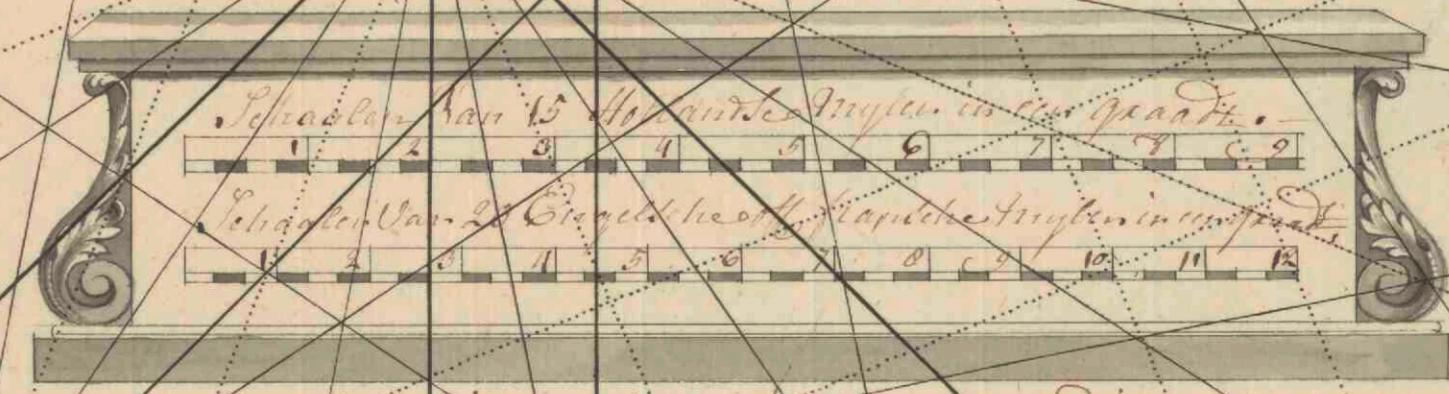 Schaalen Van 15 Hollandse Mylen in een graadt.
1 2 3 4 5 6 7 8 9
Schaalen Van 20 Engelsche off fransche Mylen in een graadt.
1 2 3 4 5 6 7 8 9 10 11 12